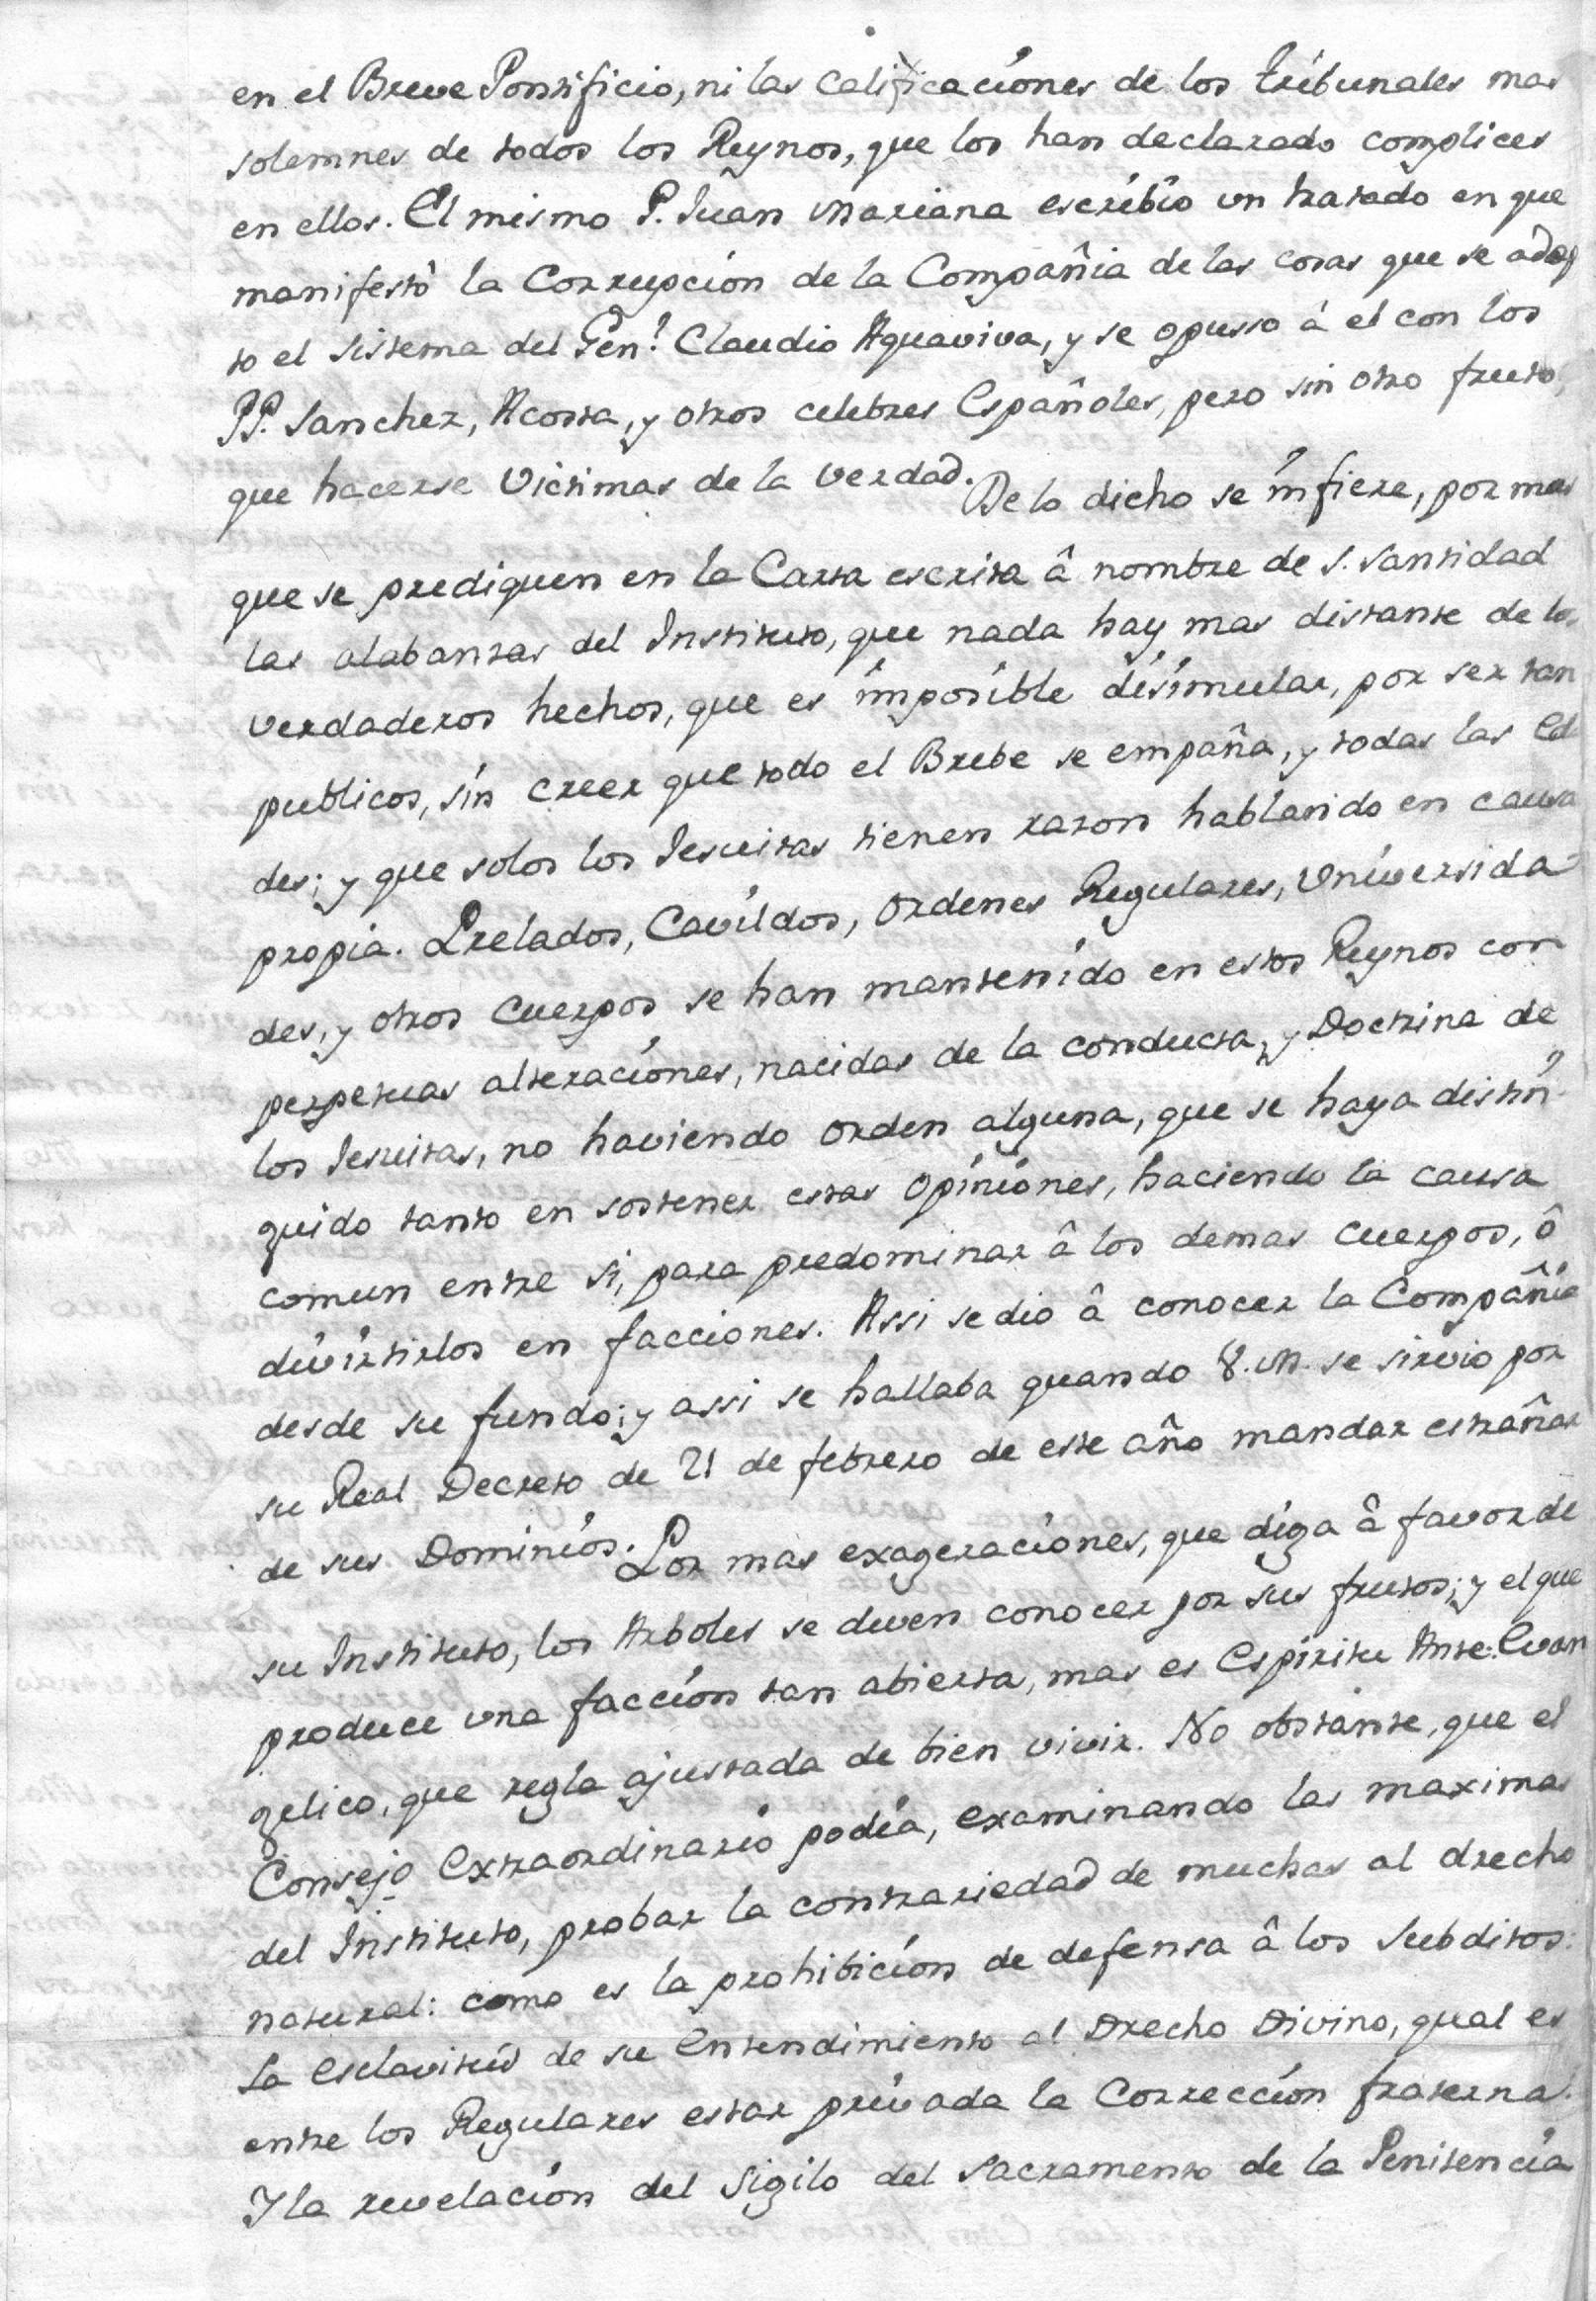 en el Breve Pontificio, ni las calificaciones de los tribunales mas
solemnes de todos los Reynos, que los han declarado complices
en ellos. El mismo P. Juan Mariana escribio un tratado en que
manifestò la Corrupcion de la Compañia de las cosas que se adop
to el sistema del Gen.l Claudio Aquaviva, y se opusso à el con los
PP. Sanchez, Acosta, y otros celebres Españoles, pero sin otro fruto,
que hacerse Victimas de la verdad. De lo dicho se infiere, por mas
que se prediquen en la Carta escrita â nombre de S. Santidad
las alabanzas del Instituto, que nada hay mas distante de los
verdaderos hechos, que es imposible disimular, por ser tan
publicos, sin creer que todo el Brebe se empaña, y todas las
des; y que solos los Jesuitas tienen razon hablando en causa
propia. Prelados, Cavildos, Ordenes Regulares, Universida
des, y otros Cuerpos se han mantenido en estos Reynos con
perpetuas alteraciones, nacidas de la conducta, y Doctrina de
los Jesuitas, no haviendo orden alguna, que se haya distin
guido tanto en sostener estas opiniones, haciendo la causa
comun entre si, para predominar â los demas Cuerpos, ô
divirtirlos en facciones. Assi se dio â conocer la Compañia
desde su fundo; y assi se hallaba quando V. M. se sirvio por
su Real Decreto de 21 de febrero de este año mandar estrañar
de sus Dominios. Por mas exageraciones, que diga â favor de
su Instituto, los Arboles se deven conocer por sus frutos; y el que
produce una faccion tan abierta, mas es Espiritu Ante-Evan
gelico, que regla ajustada de bien vivir. No obstante, que el
Consejo Extraordinario podia, examinando las maximas
del Instituto, probar la contrariedad de muchas al drecho
natural: como es la prohibicion de defensa â los Subditos:
La Esclavitud de su Entendimiento al Drecho Divino, qual es
entre los Regulares estar privada la Correccion fraterna.
Y la revelacion del Sigilo del Sacramento de la Penitencia